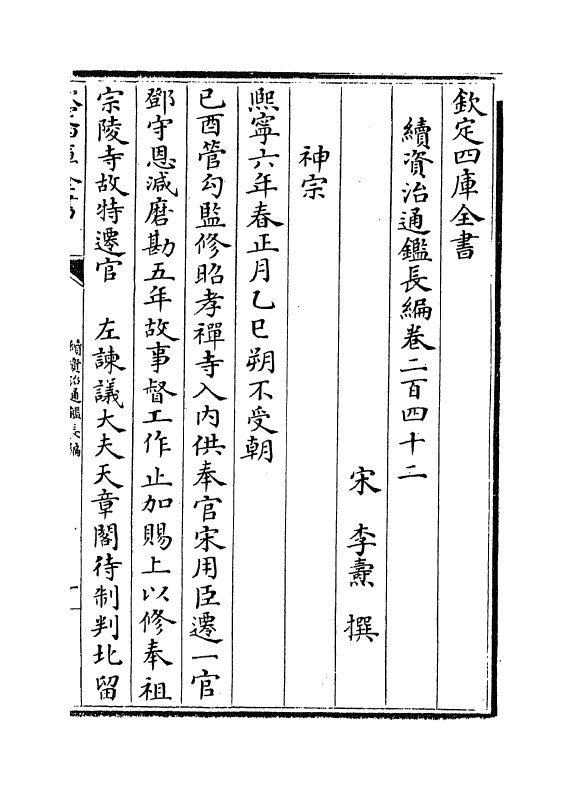 欽定四庫全書
續資治通鑑長編卷二百四十二
宋 李燾 撰
神宗
熙寧六年春正月乙巳朔不受朝
己酉管勾監修昭孝禪寺入内供奉官宋用臣遷一官
鄧守恩減磨勘五年故事督工作止加賜上以修奉祖
宗陵寺故特遷官 左諫議大夫天章閣待制判北留
續資治通鑑長編